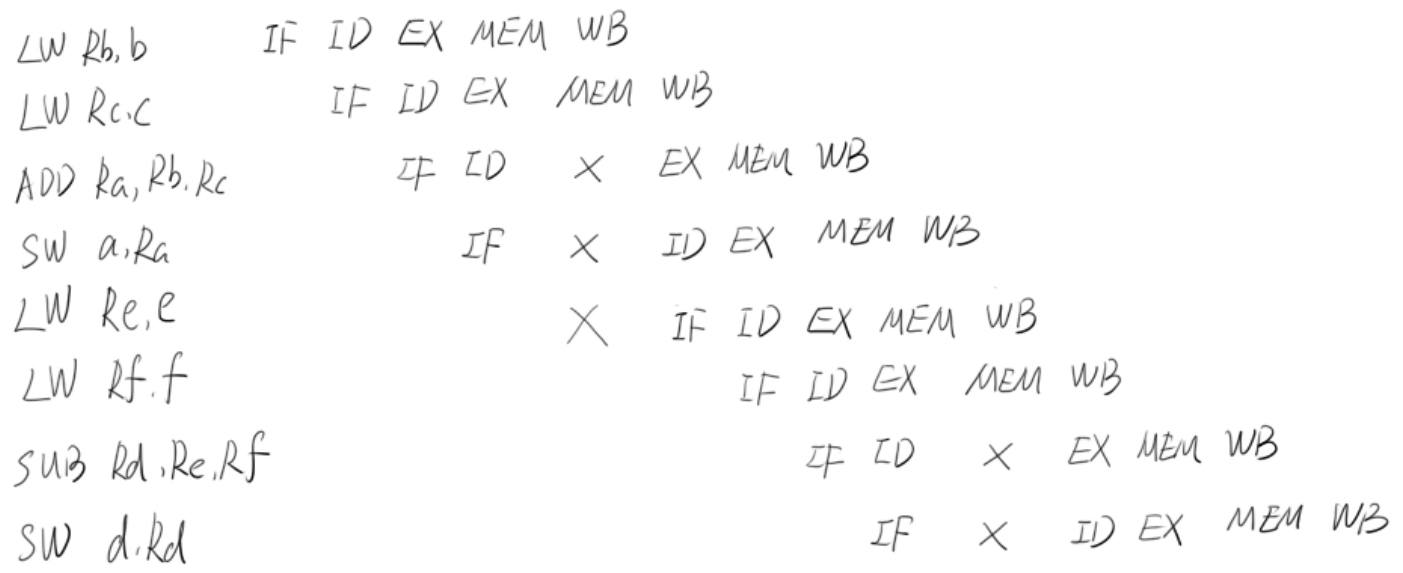 LW Rb,b IF ID EX MEM WB
LW Rc,c IF ID EX MEM WB
ADD Ra,Rb,Rc IF ID X EX MEM WB
SW a,Ra IF X ID EX MEM WB
LW Re,e X IF ID EX MEM WB
LW Rf,f IF ID EX MEM WB
SUB Rd,Re,Rf IF ID X EX MEM WB
SW d,Rd IF X ID EX MEM WB